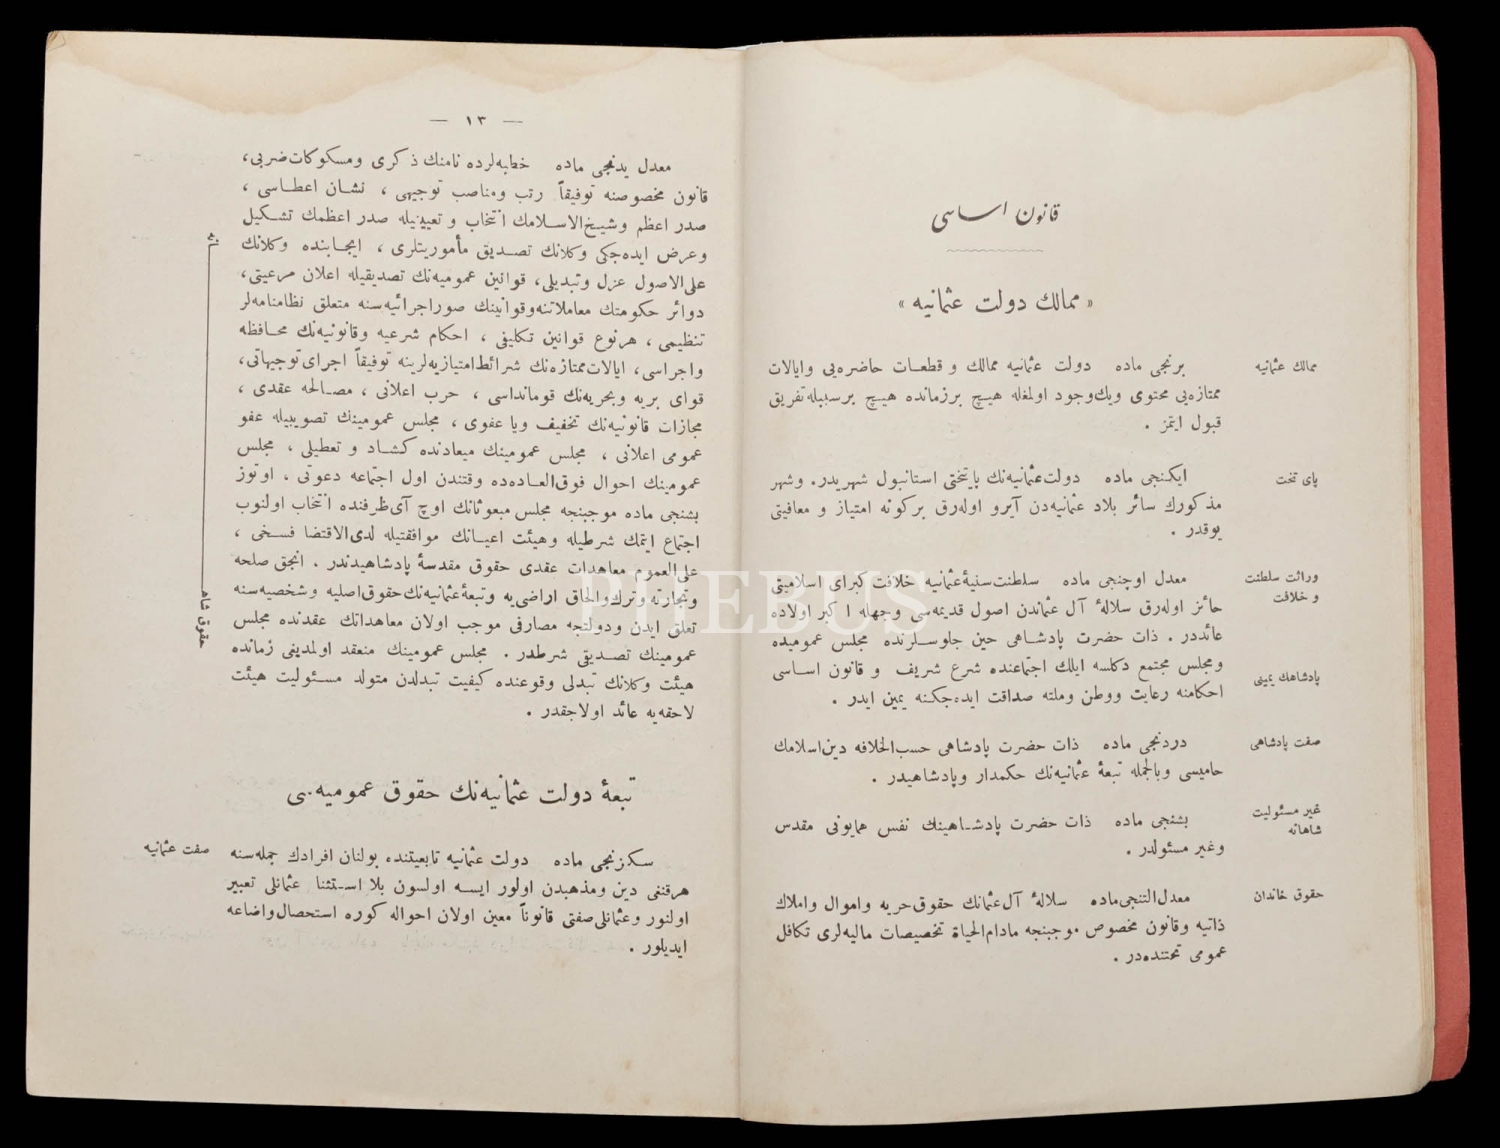 قانون اساسى
« ممالك دولت عثمانيه »
ممالك عثمانيه
برنجى ماده دولت عثمانيه ممالك و قطعات حاضره‌يى وايالات
ممتازه‌يى محتوى ويك‌وجود اولمغله هيچ برزمانده هيچ برسببله تفريق
قبول ايتمز .
پاى تخت
ايكنجى ماده دولت‌عثمانيه‌نك پايتختى استانبول شهريدر. وشهر
مذكورك سائر بلاد عثمانيه‌دن آيرو اوله‌رق بركونه امتياز و معافيتى
يوقدر .
وراثت سلطنت
و خلافت
معدل اوچنجى ماده سلطنت‌سنيۀ‌عثمانيه خلافت كبراى اسلاميتى
حائز اوله‌رق سلالۀ آل عثماندن اصول قديمه‌سى وجهله اكبر اولاده
عائددر . ذات حضرت پادشاهى حين جلوسلرنده مجلس عموميده
ومجلس مجتمع دكلسه ايلك اجتماعنده شرع شريف و قانون اساسى
احكامنه رعايت ووطن وملته صداقت ايده‌جكنه يمين ايدر .
پادشاهك يمينى
صفت پادشاهى
دردنجى ماده ذات حضرت پادشاهى حسب‌الخلافه دين‌اسلامك
حاميسى وبالجمله تبعۀ عثمانيه‌نك حكمدار وپادشاهيدر .
غير مسئوليت
شاهانه
بشنجى ماده ذات حضرت پادشاهينك نفس همايونى مقدس
وغير مسئولدر .
حقوق خاندان
معدل‌التنجى‌ماده سلالۀ آل‌عثمانك حقوق‌حريه واموال واملاك
ذاتيه وقانون مخصوص موجبنجه مادام‌الحياة تخصيصات ماليه‌لرى تكافل
عمومى تحتنده‌در .
— ١٣ —
معدل يدنجى ماده خطبه‌لرده نامنك ذكرى ومسكوكات‌ضربى،
قانون مخصوصنه توفيقاً رتب ومناصب توجيهى ، نشان اعطاسى ،
صدر اعظم وشيخ‌الاسلامك انتخاب و تعيينيله صدر اعظمك تشكيل
وعرض ايده‌جكى وكلانك تصديق مأموريتلرى ، ايجابنده وكلانك
على‌الاصول عزل وتبديلى، قوانين عموميه‌نك تصديقيله اعلان مرعيتى،
دوائر حكومتك معاملاتنه‌وقوانينك صوراجرائيه‌سنه متعلق نظامنامه‌لر
تنظيمى ، هرنوع قوانين تكليفى ، احكام شرعيه وقانونيه‌نك محافظه
واجراسى، ايالات‌ممتازه‌نك شرائط‌امتيازيه‌لرينه توفيقاً اجراى‌توجيهاتى،
قواى بريه وبحريه‌نك قومانداسى ، حرب اعلانى ، مصالحه عقدى ،
مجازات قانونيه‌نك تخفيف ويا عفوى ، مجلس عمومينك تصويبيله عفو
عمومى اعلانى ، مجلس عمومينك ميعادنده كشاد و تعطيلى ، مجلس
عمومينك احوال فوق‌العاده‌ده وقتندن اول اجتماعه دعوتى ، اوتوز
بشنجى ماده موجبنجه مجلس مبعوثانك اوچ آى‌ظرفنده انتخاب اولنوب
اجتماع ايتمك شرطيله وهيئت اعيانك موافقتيله لدى‌الاقتضا فسخى ،
على‌العموم معاهدات عقدى حقوق مقدسۀ پادشاهيدندر . انجق صلحه
وتجارته وترك‌والحاق اراضى‌يه وتبعۀ‌عثمانيه‌نك‌حقوق‌اصليه وشخصيه‌سنه
تعلق ايدن ودولتجه مصارفى موجب اولان معاهداتك عقدنده مجلس
عمومينك تصديقى شرطدر . مجلس عمومينك منعقد اولمديغى زمانده
هيئت وكلانك تبدلى وقوعنده كيفيت تبدلدن متولد مسئوليت هيئت
لاحقه‌يه عائد اولاجقدر .
حقوق شاهانه
تبعۀ دولت عثمانيه‌نك حقوق عموميه‌سى
صفت عثمانيه
سكزنجى ماده دولت عثمانيه تابعيتنده بولنان افرادك جمله‌سنه
هرقنغى دين ومذهبدن اولور ايسه اولسون بلا استثنا عثمانلى تعبير
اولنور وعثمانلى‌صفتى قانوناً معين اولان احواله كوره استحصال‌واضاعه
ايديلور .
PHEBUS